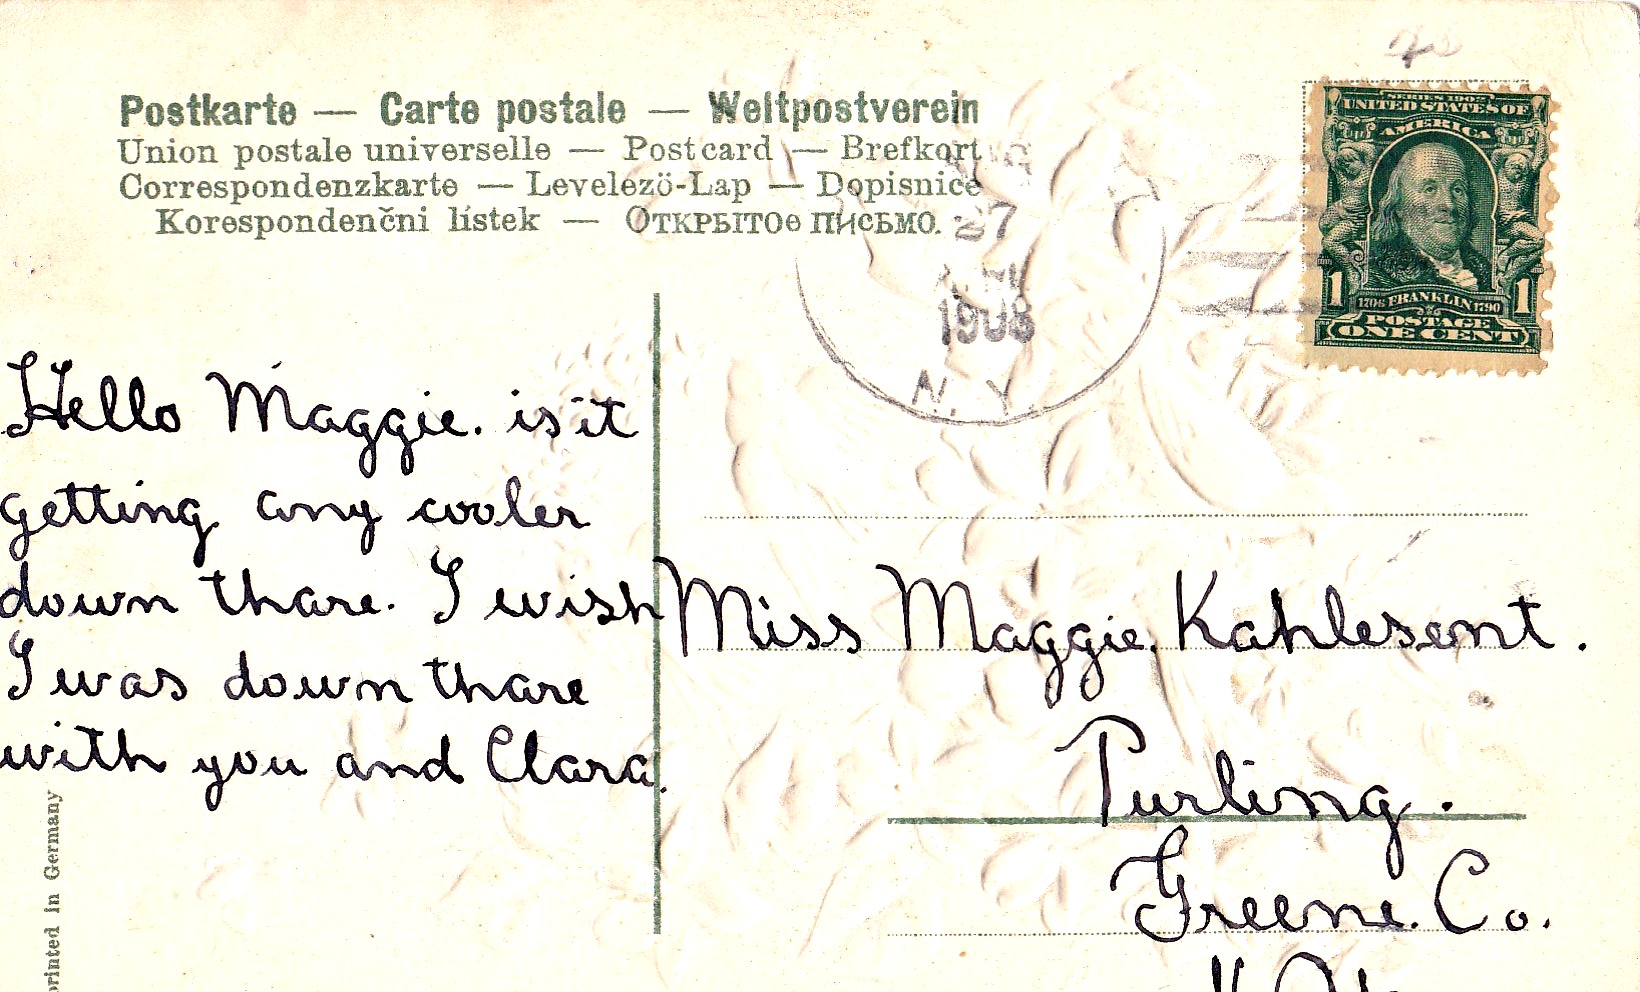 Postkarte — Carte postale — Weltpostverein
Union postale universelle — Postcard — Brefkort
Correspondenzkarte — Levelező-Lap — Dopisnice
Korespondenční lístek — Открытое письмо.
27
1908
N. Y.
SERIES 1902
UNITED STATES OF
AMERICA
1 1706 FRANKLIN 1790 1
POSTAGE
ONE CENT
Hello Maggie. is it
getting any cooler
down thare. I wish
I was down thare
with you and Clara.
Miss Maggie Kahlesent.
Purling.
Greene. Co.
N. Y.
printed in Germany